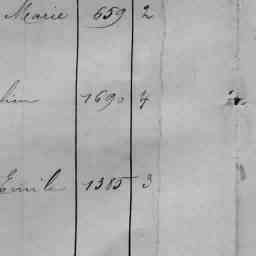 Marie 659 2
1690 4
Emile 1385 3